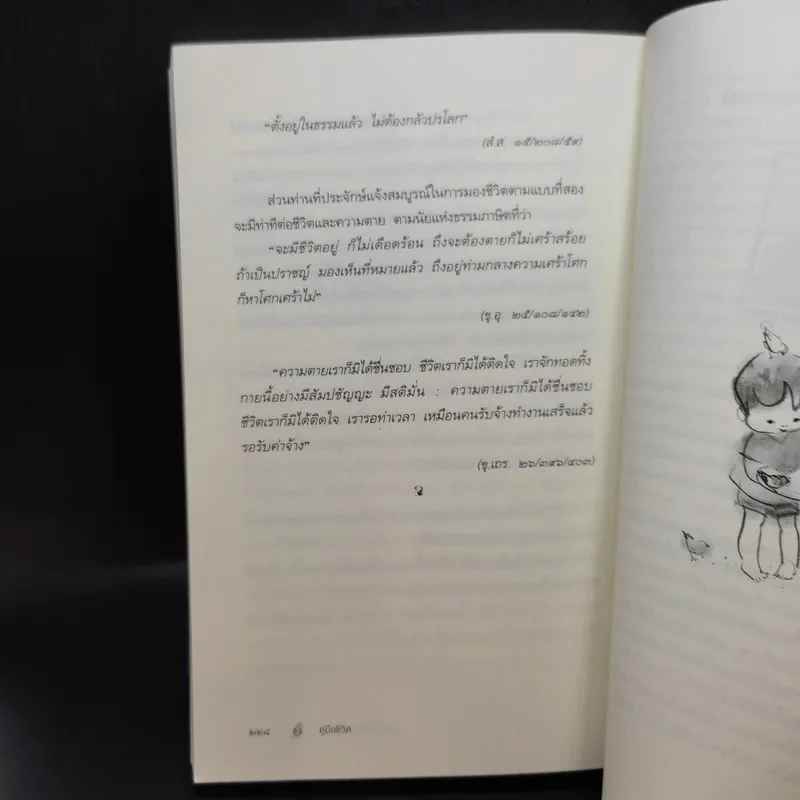 “ตั้งอยู่ในธรรมแล้ว ไม่ต้องกลัวปรโลก”
(สํ.ส. ๑๕/๒๐๘/๕๙)
ส่วนท่านที่ประจักษ์แจ้งสมบูรณ์ในการมองชีวิตตามแบบที่สอง
จะมีท่าทีต่อชีวิตและความตาย ตามนัยแห่งธรรมภาษิตที่ว่า
“จะมีชีวิตอยู่ ก็ไม่เดือดร้อน ถึงจะต้องตายก็ไม่เศร้าสร้อย
ถ้าเป็นปราชญ์ มองเห็นที่หมายแล้ว ถึงอยู่ท่ามกลางความเศร้าโศก
ก็หาโศกเศร้าไม่”
(ขุ.อุ. ๒๕/๑๐๘/๑๔๒)
“ความตายเราก็มิได้ชื่นชอบ ชีวิตเราก็มิได้ติดใจ เราจักทอดทิ้ง
กายนี้อย่างมีสัมปชัญญะ มีสติมั่น : ความตายเราก็มิได้ชื่นชอบ
ชีวิตเราก็มิได้ติดใจ เรารอท่าเวลา เหมือนคนรับจ้างทำงานเสร็จแล้ว
รอรับค่าจ้าง”
(ขุ.เถร. ๒๖/๓๙๖/๔๐๓)
๒๒๘ คู่มือชีวิต